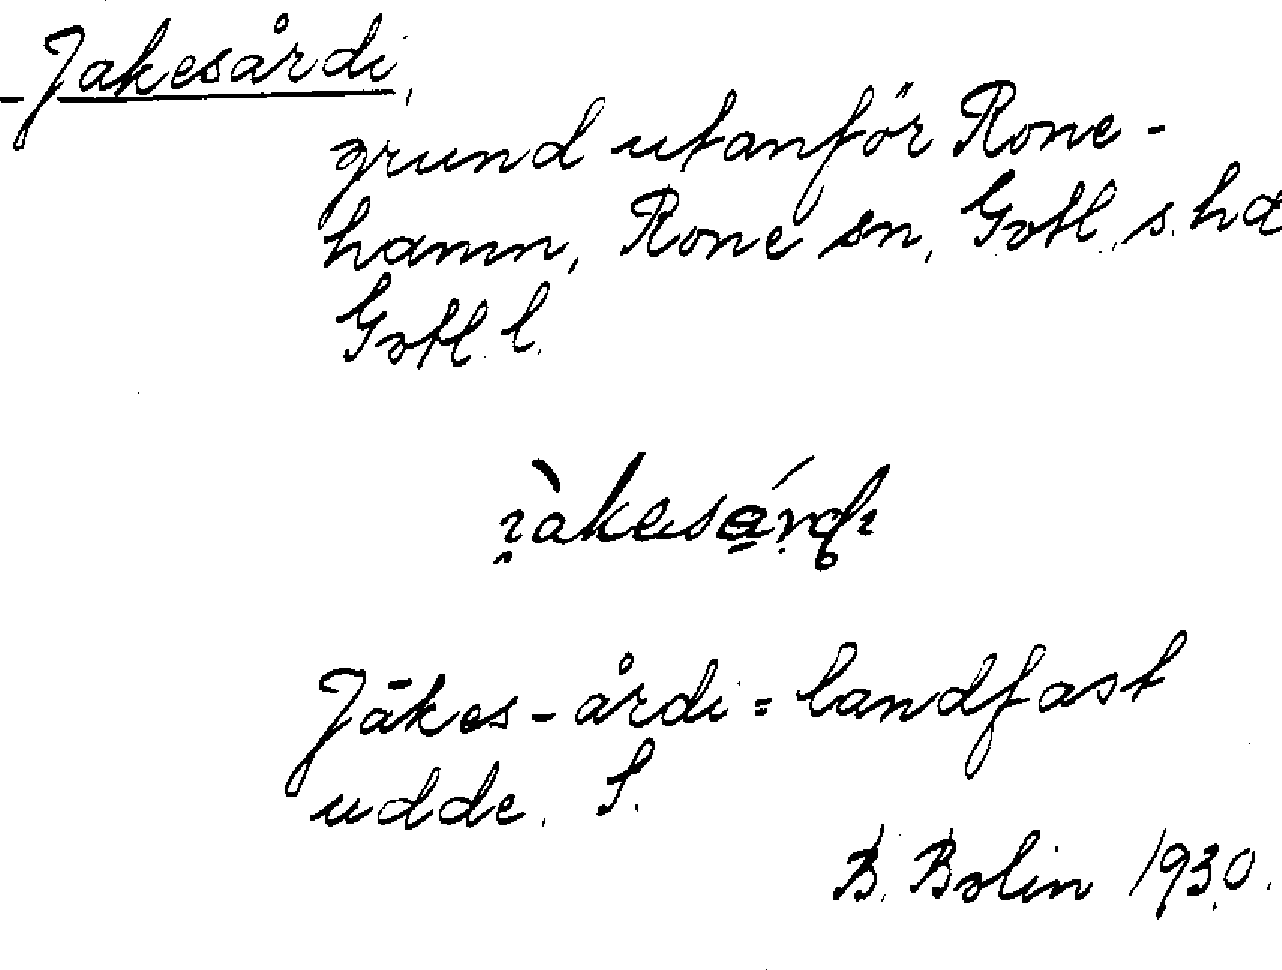 Jakesårdi,
grund utanför Rone-
hamn, Rone sn, Gotl. s. hd
Gotl. l.
Jākes-årdi = landfast
udde. S.
B. Bolin 1930.